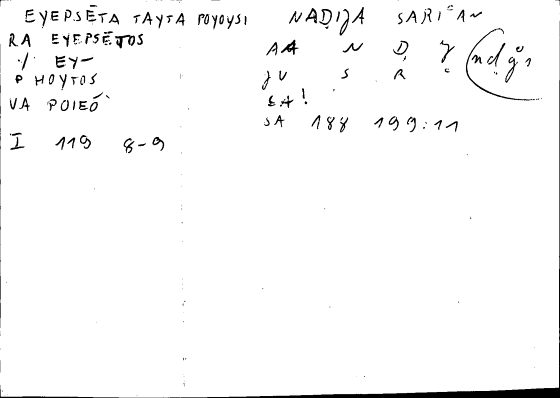 EYEPSĒTA TAYTA POYOYSI
RA EYEPSĒTOS
·/· EY-
P HOYTOS
VA POIEŌ
I 119 8-9
NAḌIJA SARIČAN
AA N Ḍ
JU S R
SA!
SA 188 199:11